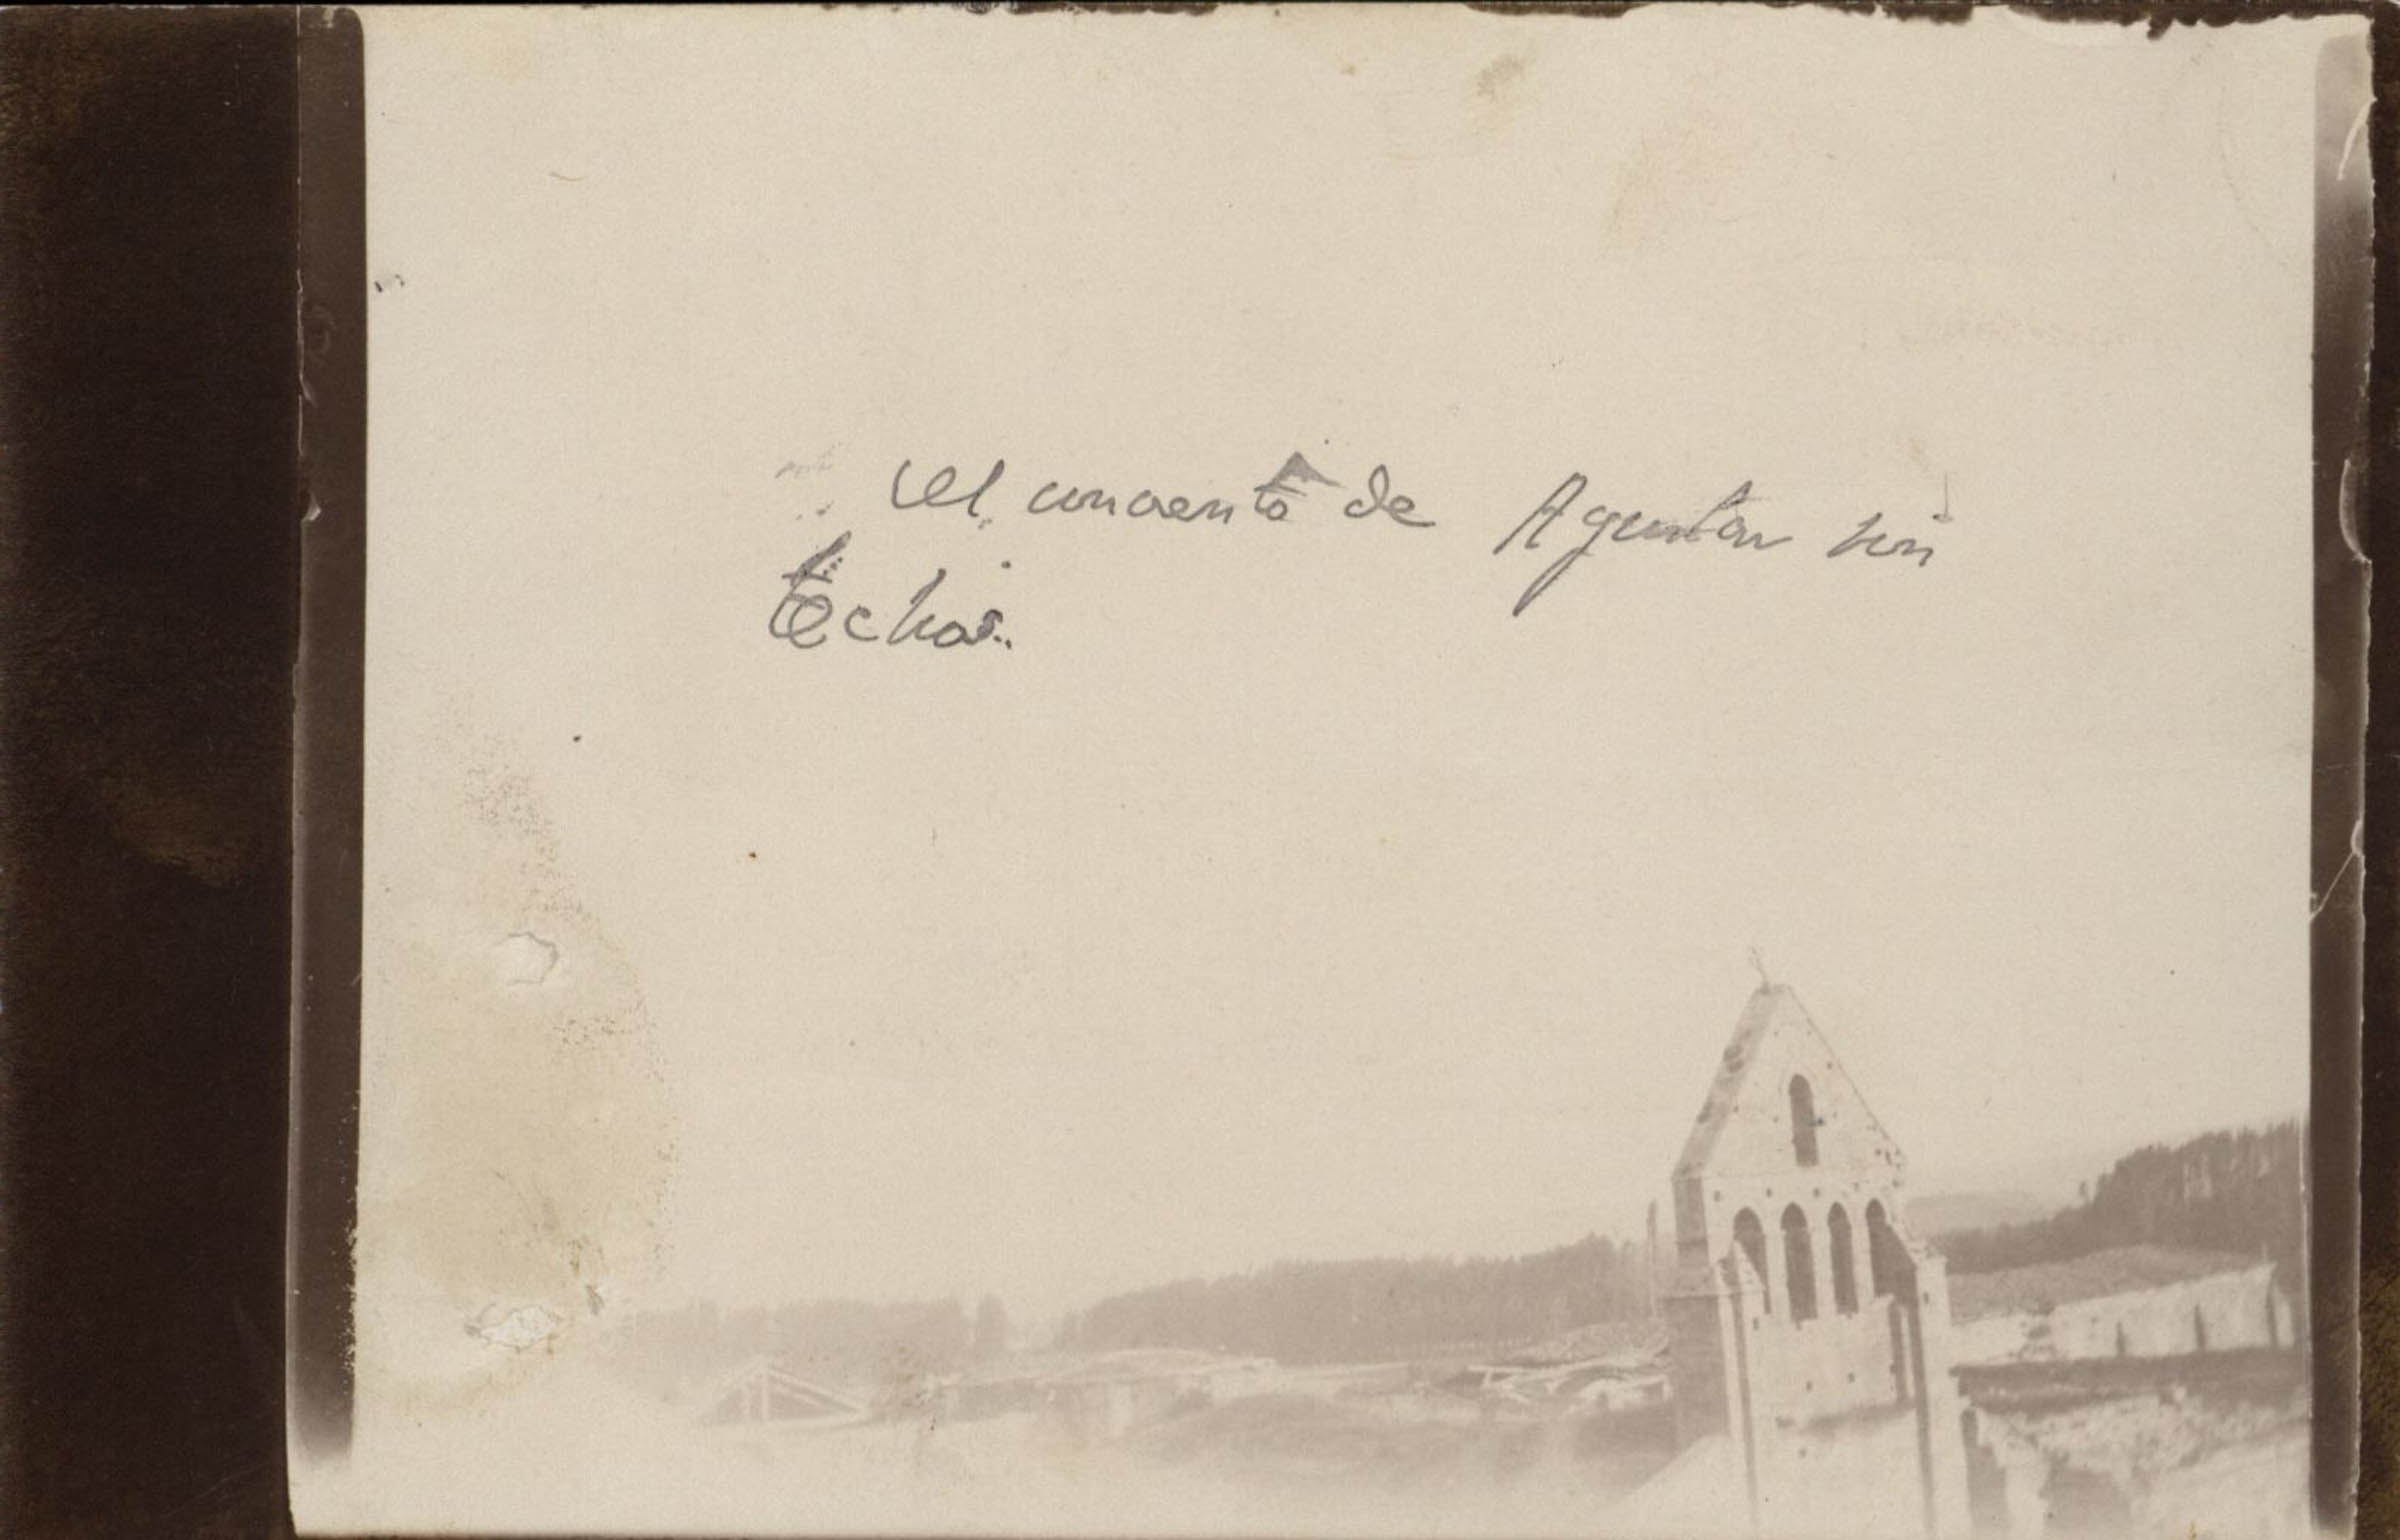 el convento de Agustar sin
techos.